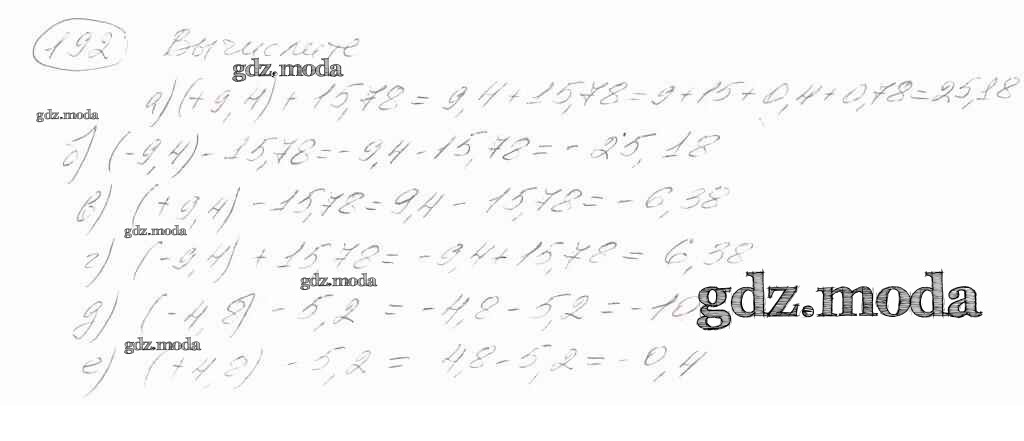 192 Вычислите
gdz.moda
а) (+9,4) + 15,78 = 9,4 + 15,78 = 9 + 15 + 0,4 + 0,78 = 25,18
gdz.moda
б) (-9,4) - 15,78 = - 9,4 - 15,78 = - 25,18
в) (+9,4) - 15,78 = 9,4 - 15,78 = - 6,38
gdz.moda
г) (-9,4) + 15,78 = -9,4 + 15,78 = 6,38
gdz.moda
gdz.moda
д) (-4,8) - 5,2 = -4,8 - 5,2 = -10
gdz.moda
е) (+4,8) - 5,2 = 4,8 - 5,2 = - 0,4